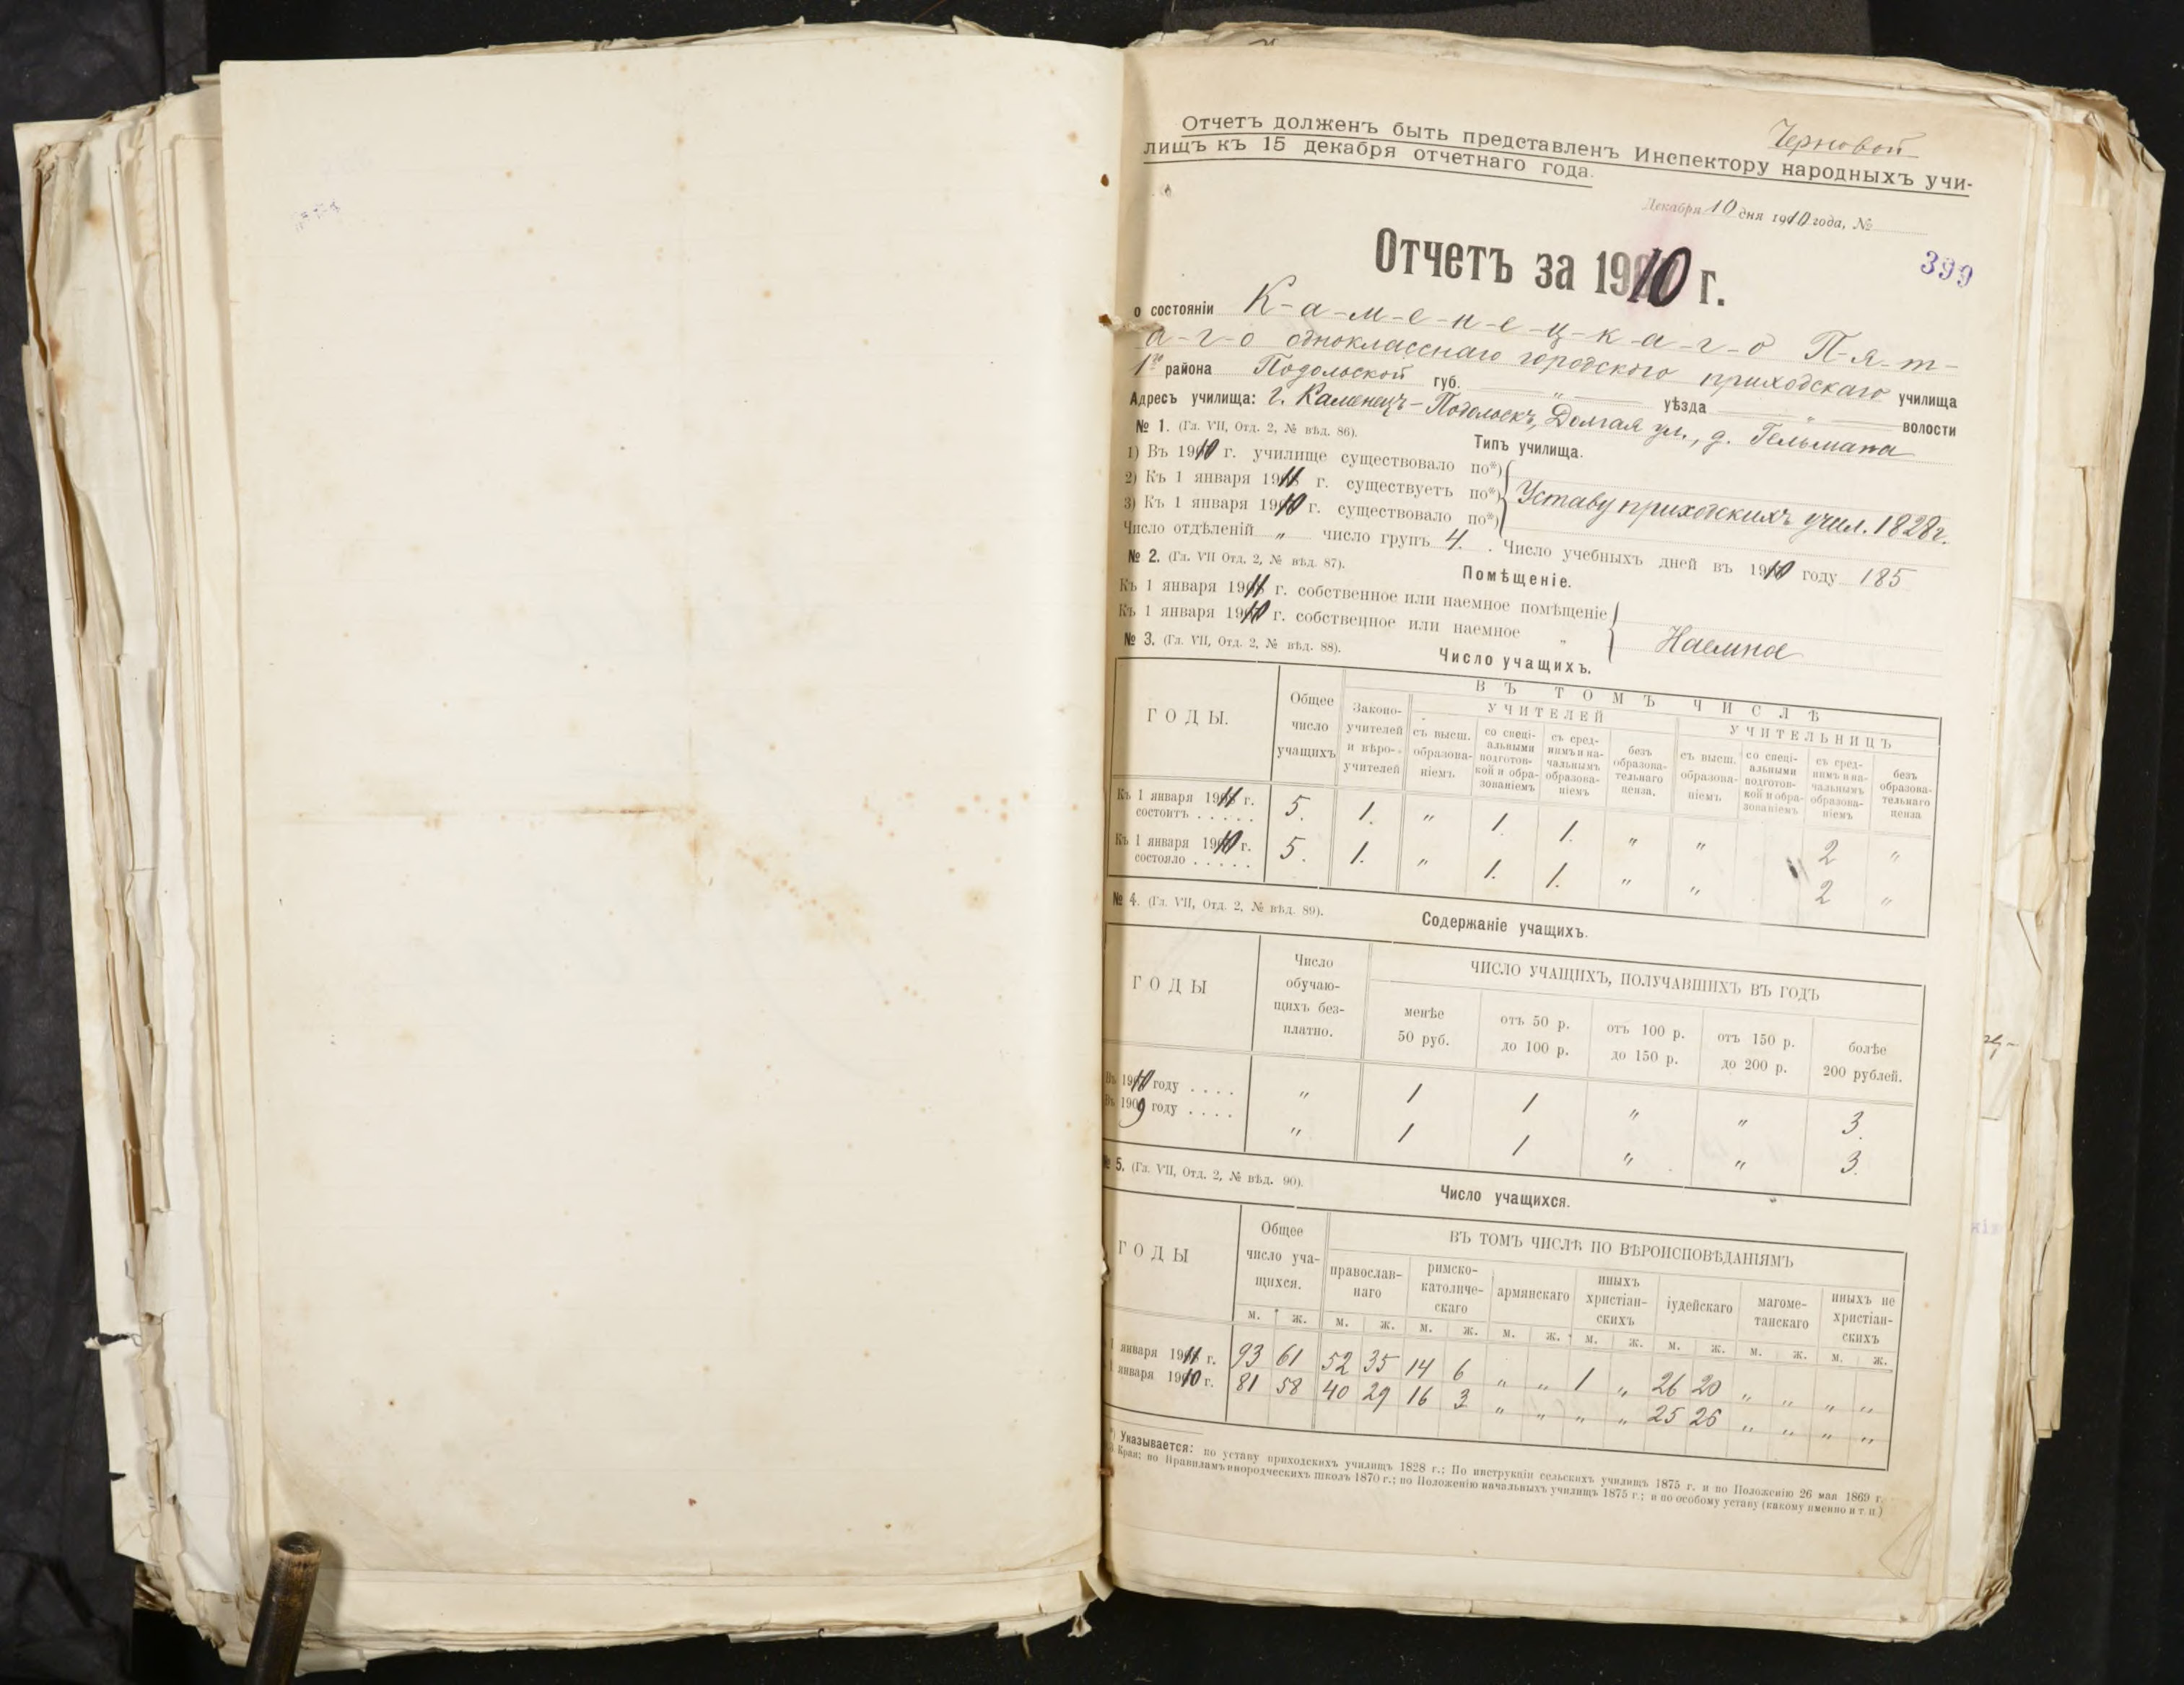 Черновой
Отчетъ долженъ быть представленъ Инспектору народныхъ учи-
лищъ къ 15 декабря отчетнаго года.
Декабря 10 дня 1910 года, №
399
Отчетъ за 1910 г.
о состоянiи К-а-м-е-н-е-ц-к-а-г-о П-я-т-
а-г-о однокласснаго городского приходскаго училища
1го района Подольской губ. „ уѣзда „ волости
Адресъ училища: г. Каменецъ-Подольскъ, Долгая ул., д. Гельмана
№ 1. (Гл. VII, Отд. 2, № вѣд. 86). Типъ училища.
1) Въ 1910 г. училище существовало по*)
2) Къ 1 января 1911 г. существуетъ по*) Уставу приходскихъ учил. 1828 г.
3) Къ 1 января 1910 г. существовало по*)
Число отдѣленiй „ число групъ 4. . Число учебныхъ дней въ 1910 году 185
№ 2. (Гл. VII Отд. 2, № вѣд. 87). Помѣщенiе.
Къ 1 января 1911 г. собственное или наемное помѣщенiе
Къ 1 января 1910 г. собственное или наемное „ Наемное
№ 3. (Гл. VII, Отд. 2, № вѣд. 88). Число учащихъ.
ГОДЫ. Общее число учащихъ ВЪ ТОМЪ ЧИСЛѢ
Законо-учителей и вѣро-учителей УЧИТЕЛЕЙ УЧИТЕЛЬНИЦЪ
съ высш. образова-нiемъ со спецi-альными подготов-кой и обра-зованiемъ съ сред-нимъ и на-чальнымъ образова-нiемъ безъ образова-тельнаго ценза. съ высш. образова-нiемъ со спецi-альными подготов-кой и обра-зованiемъ съ сред-нимъ и на-чальнымъ образова-нiемъ безъ образова-тельнаго ценза
Къ 1 января 1911 г. состоитъ . . . . . 5. 1. „ 1. 1. „ „ 2 „
Къ 1 января 1910 г. состояло . . . . . 5. 1. „ 1. 1. „ „ 2 „
№ 4. (Гл. VII, Отд. 2, № вѣд. 89). Содержанiе учащихъ.
ГОДЫ Число обучаю-щихъ без-платно. ЧИСЛО УЧАЩИХЪ, ПОЛУЧАВШИХЪ ВЪ ГОДЪ
менѣе 50 руб. отъ 50 р. до 100 р. отъ 100 р. до 150 р. отъ 150 р. до 200 р. болѣе 200 рублей.
Въ 1910 году . . . . „ 1 1 „ „ 3.
Въ 1909 году . . . . „ 1 1 „ „ 3.
№ 5. (Гл. VII, Отд. 2, № вѣд. 90). Число учащихся.
ГОДЫ Общее число уча-щихся. ВЪ ТОМЪ ЧИСЛѢ ПО ВѢРОИСПОВѢДАНIЯМЪ
православ-наго римско-католиче-скаго армянскаго иныхъ христiан-скихъ iудейскаго магоме-танскаго иныхъ не христiан-скихъ
м. ж. м. ж. м. ж. м. ж. м. ж. м. ж. м. ж. м. ж.
1 января 1911 г. 93 61 52 35 14 6 „ „ 1 „ 26 20 „ „ „ „
1 января 1910 г. 81 58 40 29 16 3 „ „ „ „ 25 26 „ „ „ „
*) Указывается: по уставу приходскихъ училищъ 1828 г.; По инструкцiи сельскихъ училищъ 1875 г. и по Положенiю 26 мая 1869 г.
Края; по Правиламъ инородческихъ школъ 1870 г.; по Положенiю начальныхъ училищъ 1875 г.; и по особому уставу (какому именно и т. п.)